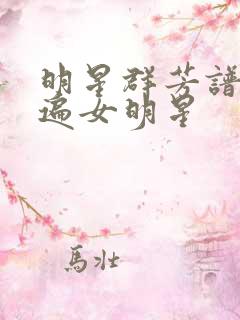 明星群芳譜
遍女明星
馬壮